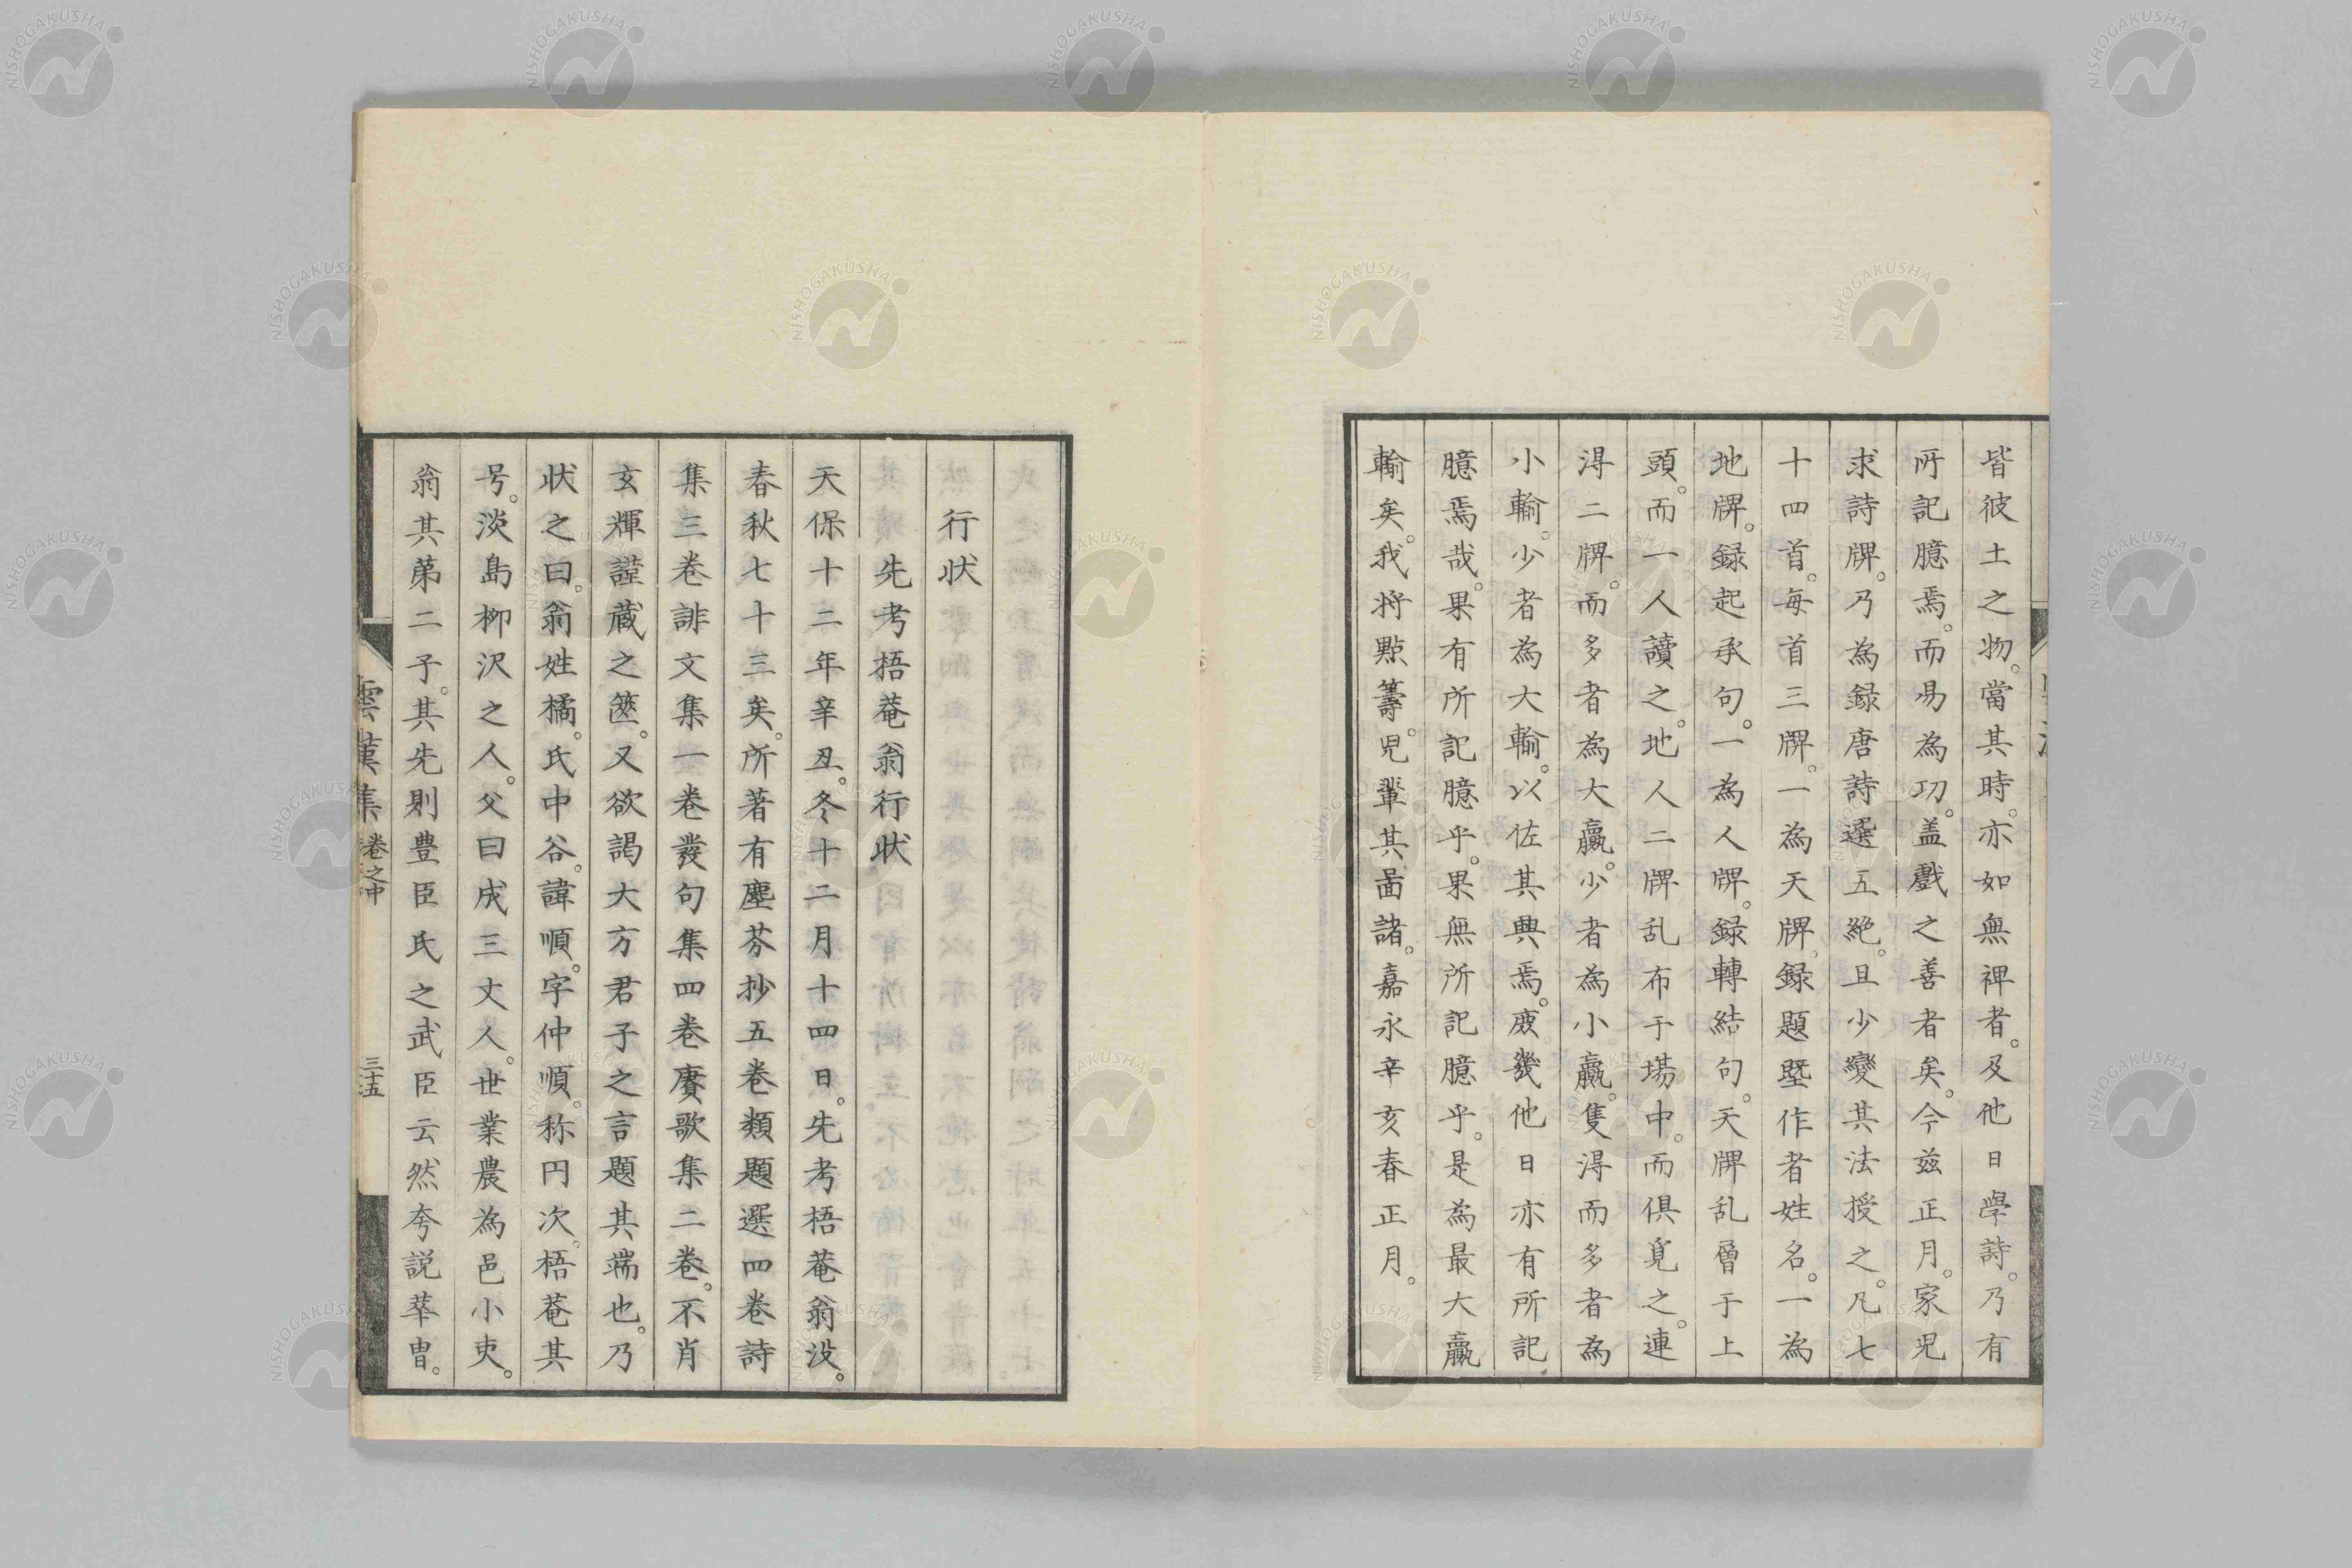 皆彼土之物。當其時。亦如無裨者。及他日學詩。乃有
所記臆焉。而易為功。盖戯之善者矣。今兹正月。家児
求詩牌。乃為録唐詩選五絶。且少變其法授之。凡七
十四首。毎首三牌。一為天牌。録題曁作者姓名。一為
地牌。録起承句。一為人牌。録轉結句。天牌乱層于上
頭。而一人讀之。地人二牌乱布于場中。而倶覓之。連
淂二牌。而多者為大贏。少者為小贏。隻淂而多者為
小輸。少者為大輸。以佐其興焉。庻幾他日亦有所記
臆焉哉。果有所記臆乎。果無所記臆乎。是為最大贏
輸矣。我将點籌児輩其啚諸。嘉永辛亥春正月。
行状
先考梧菴翁行状
天保十二年辛丑。冬十二月十四日。先考梧菴翁没。
春秋七十三矣。所著有塵芥抄五巻類題選四巻詩
集三巻誹文集一巻發句集四巻賡歌集二巻。不肖
玄輝謹蔵之篋。又欲謁大方君子之言題其端也。乃
状之曰。翁姓橘。氏中谷。諱順。字仲順。称円次。梧菴其
号。淡島柳沢之人。父曰成三丈人。世業農為邑小吏。
翁其第二子。其先則豊臣氏之武臣云然夸説莘冑。
雲漢集 巻之中
三十五
NISHOGAKUSHA